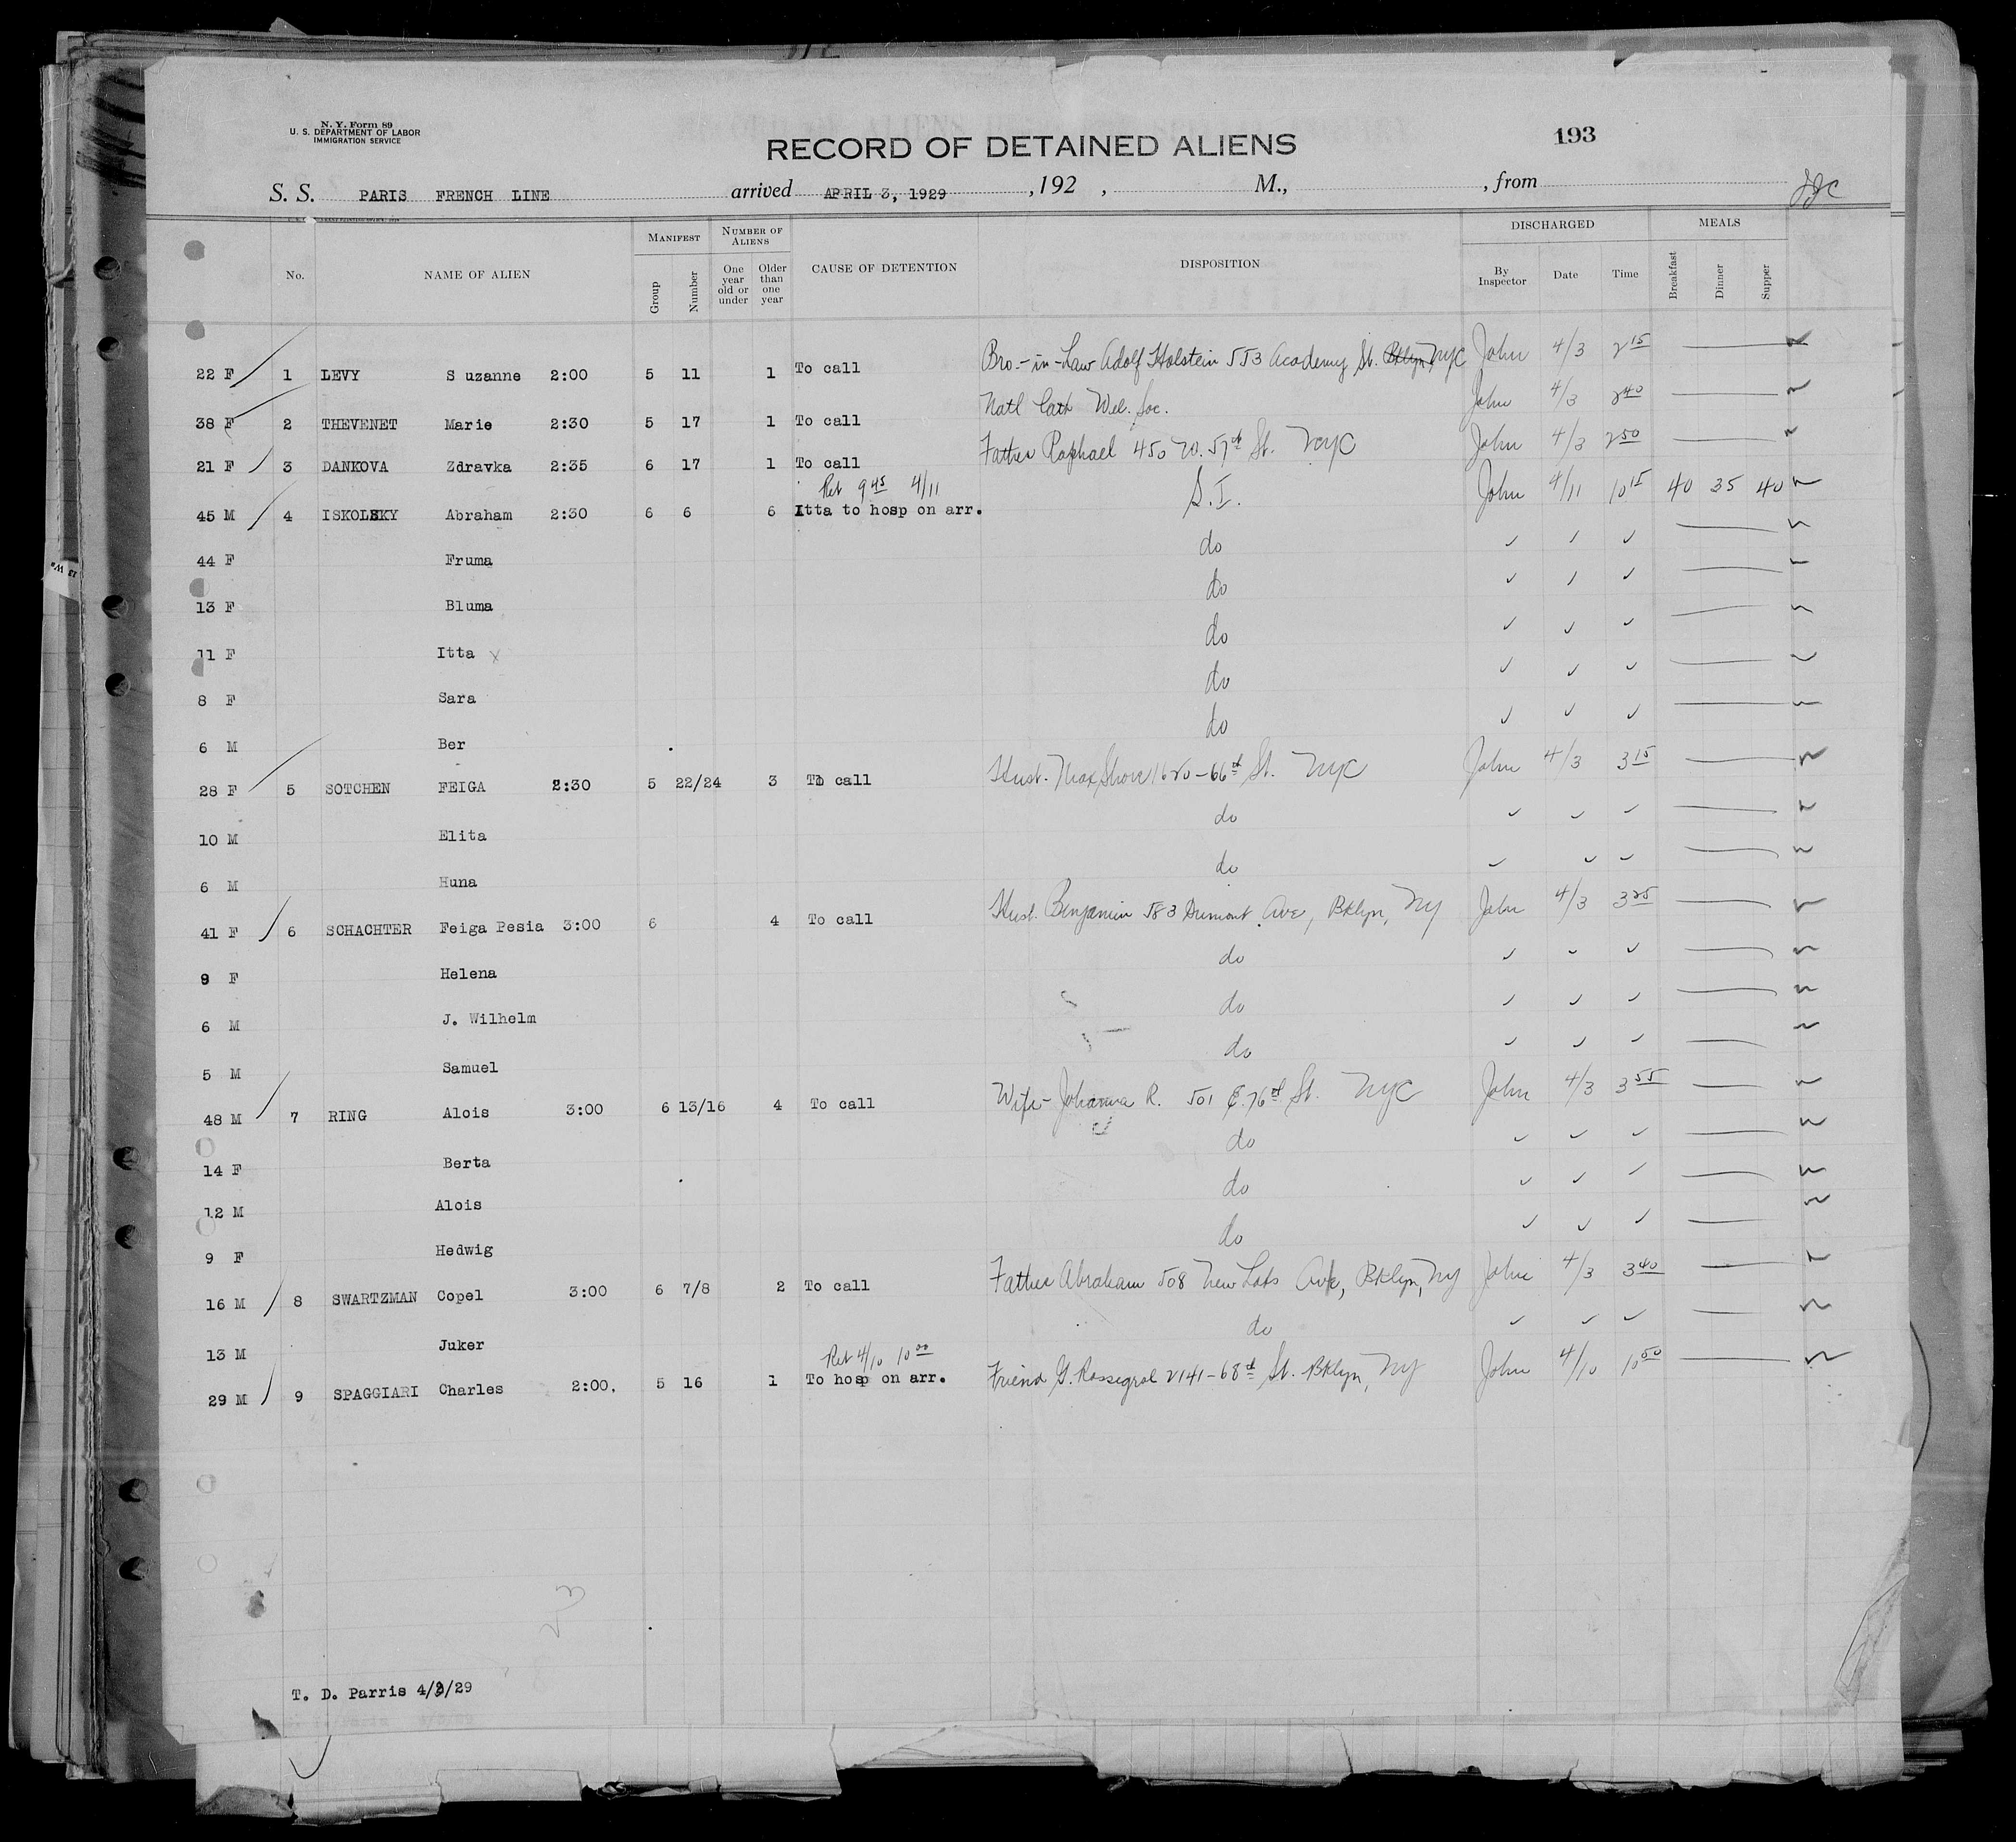 N. Y. Form 89
U. S. DEPARTMENT OF LABOR
IMMIGRATION SERVICE
RECORD OF DETAINED ALIENS
193
S. S. PARIS FRENCH LINE arrived APRIL 3, 1929, 192 , M., , from
No. NAME OF ALIEN MANIFEST Group Number NUMBER OF ALIENS One year old or under Older than one year CAUSE OF DETENTION DISPOSITION DISCHARGED By Inspector Date Time MEALS Breakfast Dinner Supper
22 F 1 LEVY S uzanne 2:00 5 11 1 To call Bro-in-Law Adolf Holstein 553 Academy St. Bklyn, NYC John 4/3 2 15
38 F 2 THEVENET Marie 2:30 5 17 1 To call Natl Cath Wel. Soc. John 4/3 2 40
21 F 3 DANKOVA Zdravka 2:35 6 17 1 To call Father Raphael 450 W. 57th St. NYC John 4/3 2 50
Ret 9 45 4/11
45 M 4 ISKOLSKY Abraham 2:30 6 6 6 Itta to hosp on arr. S.I. John 4/11 10 15 40 35 40
44 F Fruma do
13 F Bluma do
11 F Itta x do
8 F Sara do
6 M Ber do
28 F 5 SOTCHEN FEIGA 2:30 5 22/24 3 To call Husb. Max Shore 1620-66th St. NYC John 4/3 3 15
10 M Elita do
6 M Huna do
41 F 6 SCHACHTER Feiga Pesia 3:00 6 4 To call Husb. Benjamin 583 Dumont Ave, Bklyn, NY John 4/3 3 25
9 F Helena do
6 M J. Wilhelm do
5 M Samuel do
48 M 7 RING Alois 3:00 6 13/16 4 To call Wife-Johanna R. 501 E. 76th St. NYC John 4/3 3 55
14 F Berta do
12 M Alois do
9 F Hedwig do
16 M 8 SWARTZMAN Copel 3:00 6 7/8 2 To call Father Abraham 508 New Lots Ave, Bklyn, NY John 4/3 3 40
13 M Juker do
Ret 4/10 10 00
29 M 9 SPAGGIARI Charles 2:00. 5 16 1 To hosp on arr. Friend G. 2141-68th St. Bklyn, NY John 4/10 10 50
23
T. D. Parris 4/3/29